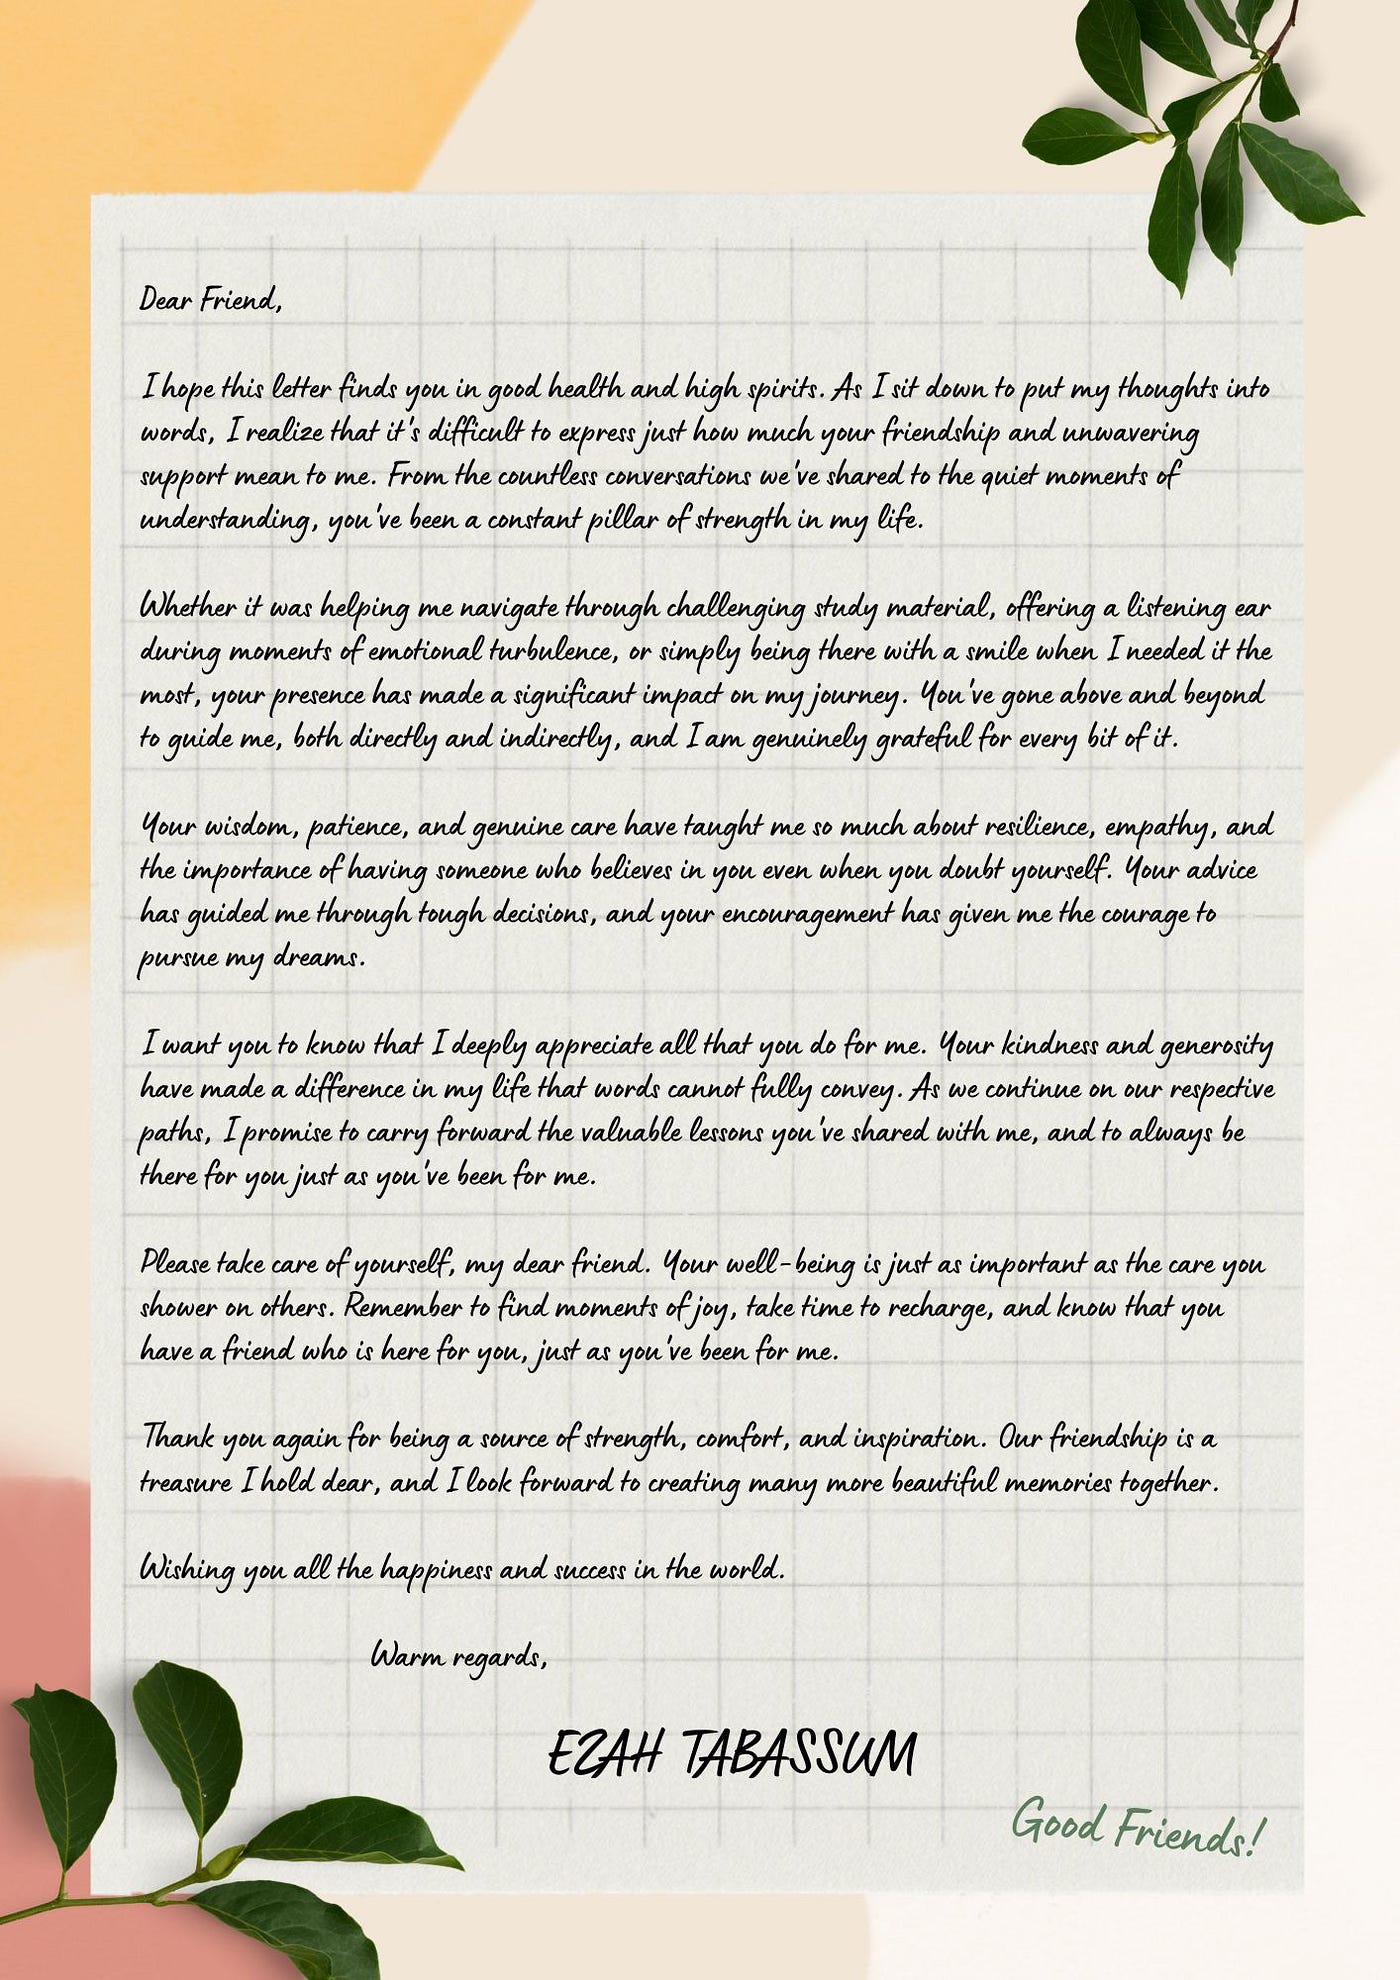 Dear Friend,
I hope this letter finds you in good health and high spirits. As I sit down to put my thoughts into
words, I realize that it's difficult to express just how much your friendship and unwavering
support mean to me. From the countless conversations we've shared to the quiet moments of
understanding, you've been a constant pillar of strength in my life.
Whether it was helping me navigate through challenging study material, offering a listening ear
during moments of emotional turbulence, or simply being there with a smile when I needed it the
most, your presence has made a significant impact on my journey. You've gone above and beyond
to guide me, both directly and indirectly, and I am genuinely grateful for every bit of it.
Your wisdom, patience, and genuine care have taught me so much about resilience, empathy, and
the importance of having someone who believes in you even when you doubt yourself. Your advice
has guided me through tough decisions, and your encouragement has given me the courage to
pursue my dreams.
I want you to know that I deeply appreciate all that you do for me. Your kindness and generosity
have made a difference in my life that words cannot fully convey. As we continue on our respective
paths, I promise to carry forward the valuable lessons you've shared with me, and to always be
there for you just as you've been for me.
Please take care of yourself, my dear friend. Your well-being is just as important as the care you
shower on others. Remember to find moments of joy, take time to recharge, and know that you
have a friend who is here for you, just as you've been for me.
Thank you again for being a source of strength, comfort, and inspiration. Our friendship is a
treasure I hold dear, and I look forward to creating many more beautiful memories together.
Wishing you all the happiness and success in the world.
Warm regards,
EZAH TABASSUM
Good Friends!